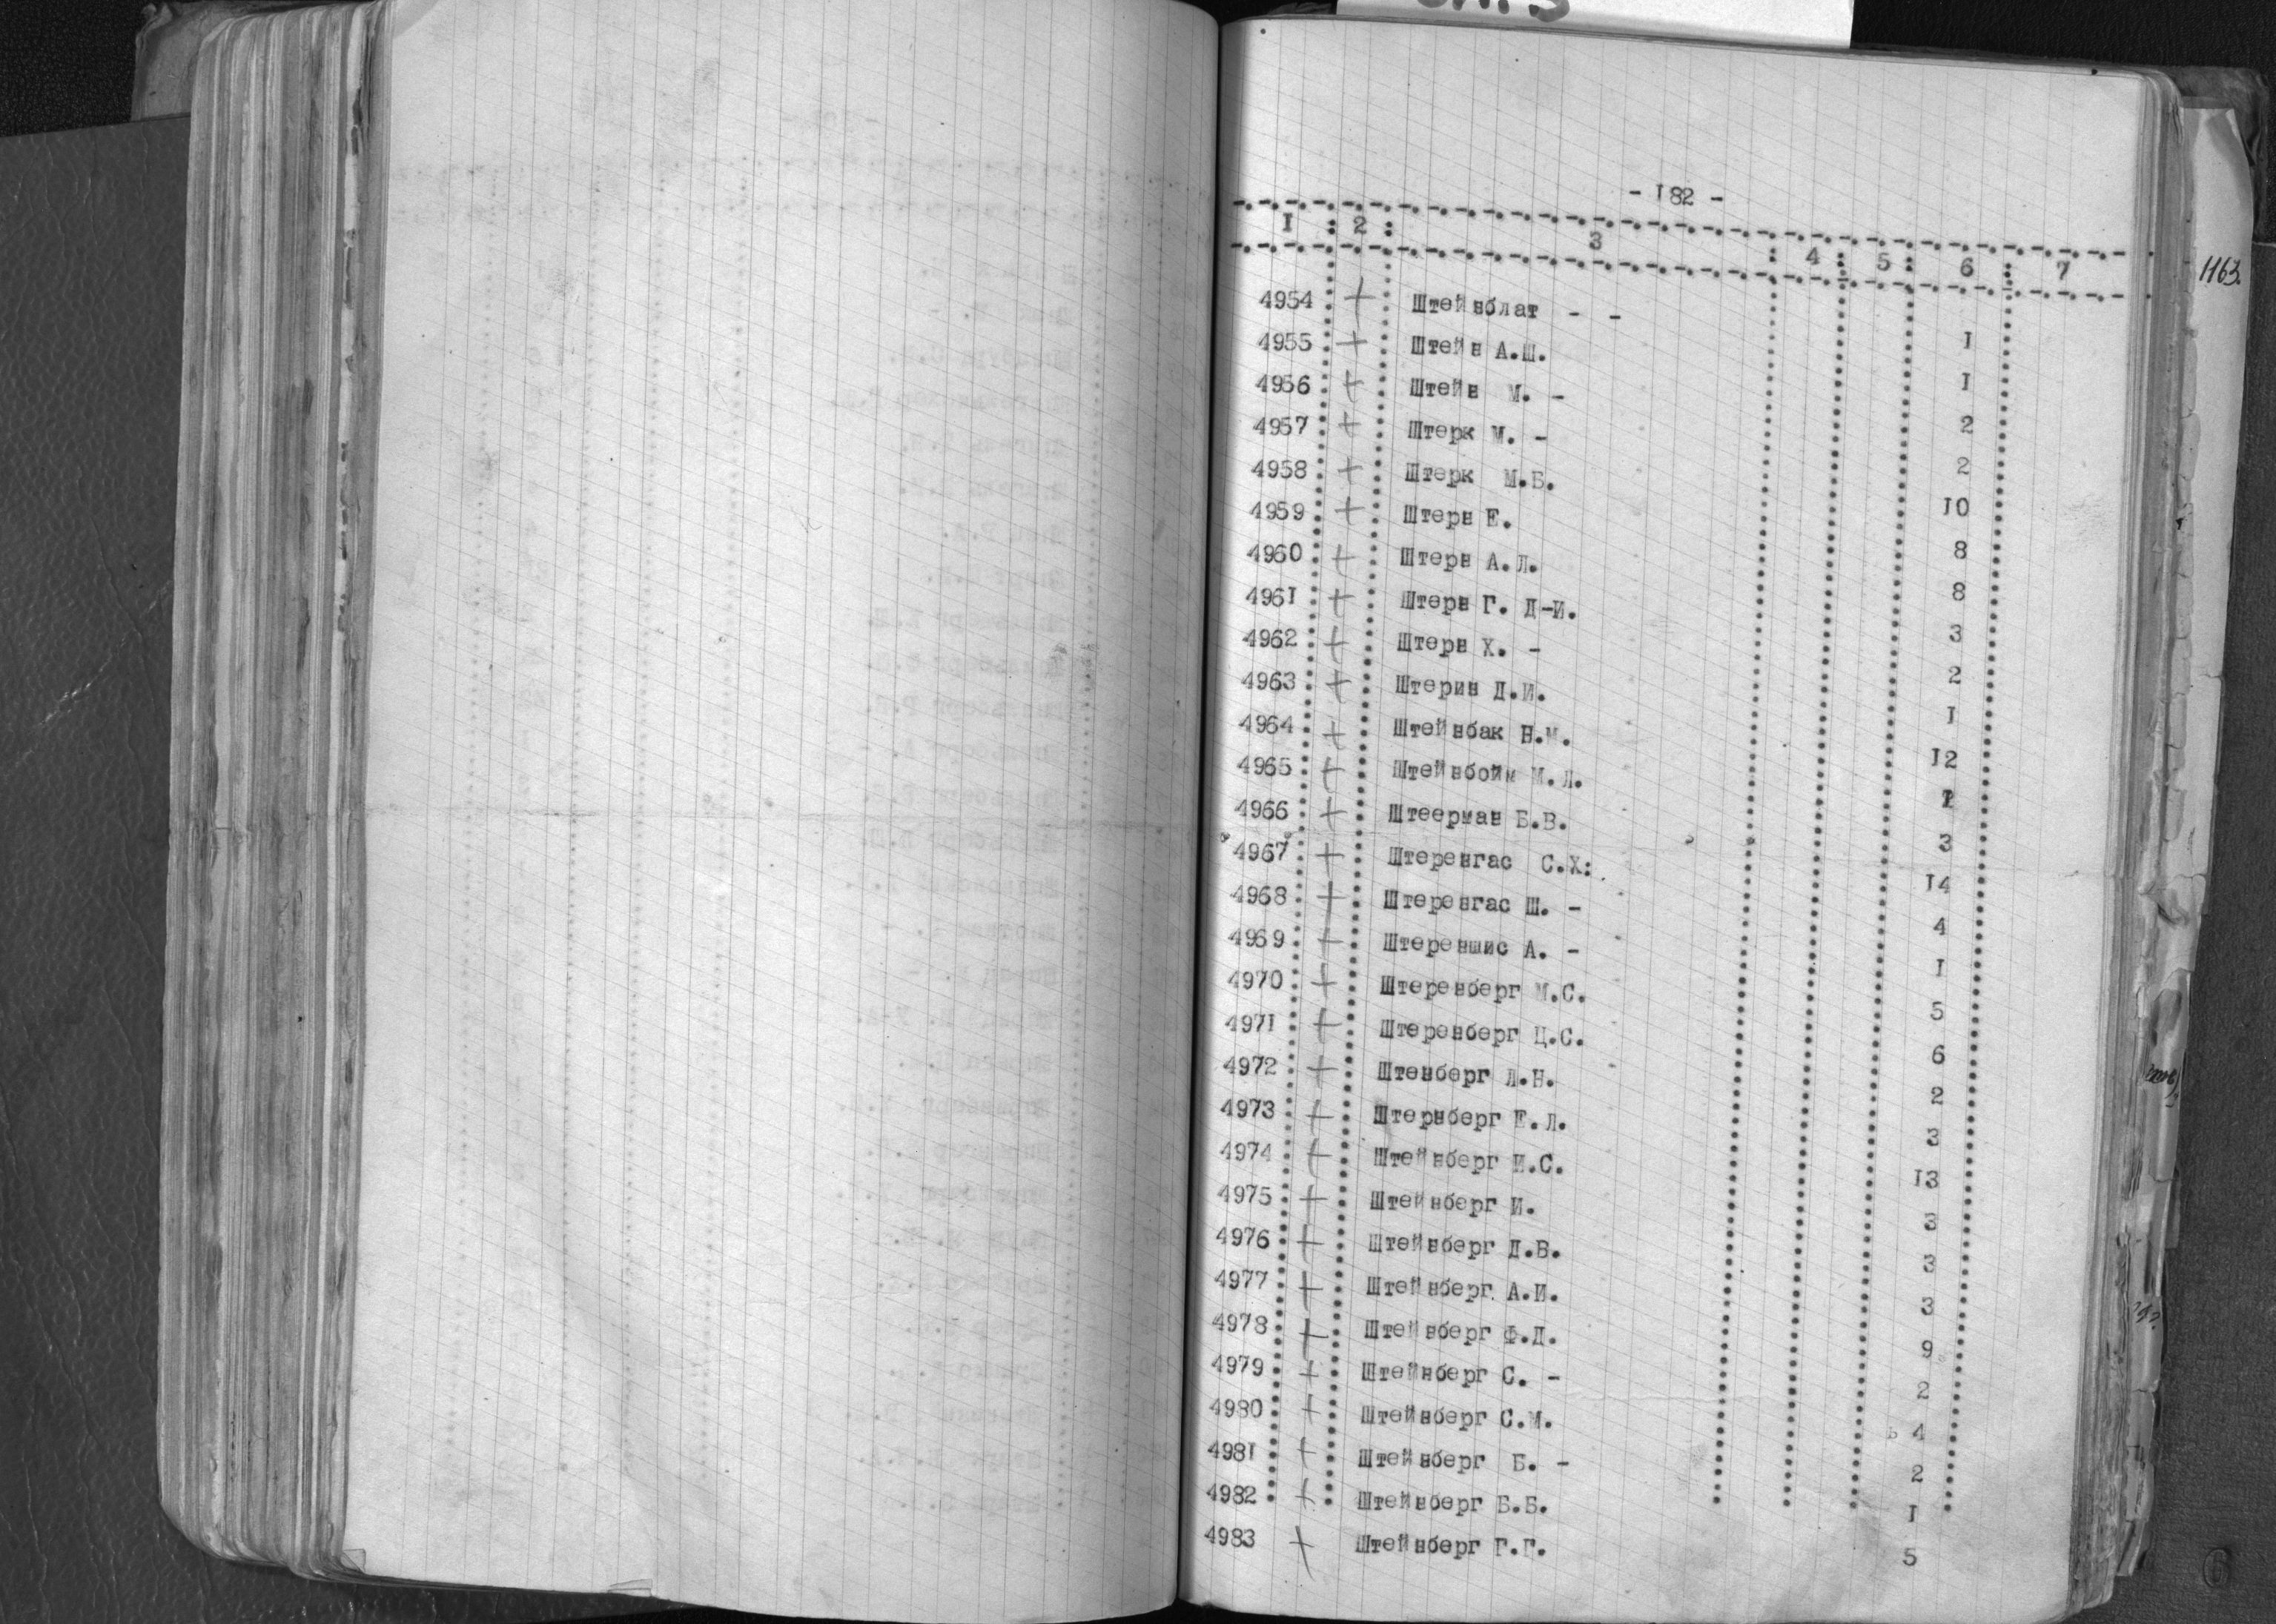 сп. 5
- 182 -
1 : 2 : 3 : 4 : 5 : 6 : 7
1163.
4954 + Штейнблат - - 1
4955 + Штейн А.Ш. 1
4956 + Штейн М. - 2
4957 + Штерк М. - 2
4958 + Штерк М.Б. 10
4959 + Штерн Е. 8
4960 + Штерн А.Л. 8
4961 + Штерн Г. Д-И. 3
4962 + Штерн Х. - 2
4963 + Штерин Д.И. 1
4964 + Штейнбак Н.М. 12
4965 + Штейнбойм М.Л.
4966 + Штеерман Б.В. 3
4967 + Штеренгас С.Х: 14
4968 + Штеренгас Ш. - 4
4969 + Штереншис А. - 1
4970 + Штеренберг М.С. 5
4971 + Штеренберг Ц.С. 6
4972 + Штенберг Л.Н. 2
4973 + Штернберг Е.Л. 3
4974 + Штейнберг И.С. 13
4975 + Штейнберг И. 3
4976 + Штейнберг Д.В. 3
4977 + Штейнберг А.И. 3
4978 + Штейнберг Ф.Д. 9
4979 + Штейнберг С. - 2
4980 + Штейнберг С.М. 4
4981 + Штейнберг Б. - 2
4982 + Штейнберг Б.Б. 1
4983 + Штейнберг Г.Г. 5